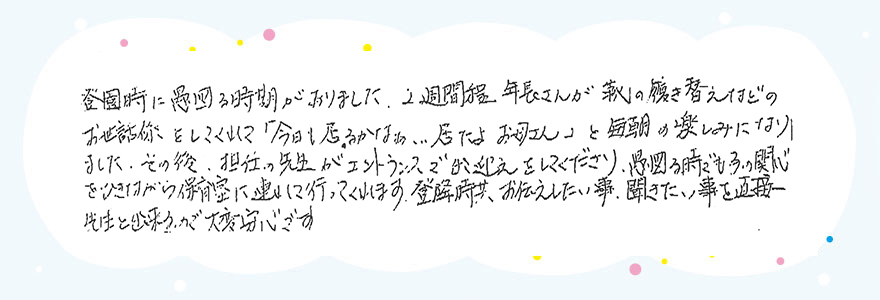 登園時に愚図る時期がありました。2週間程 年長さんが 靴の履き替えなどの
お世話係をしてくれて「今日も居るかなぁ…居たよ お母さん」と毎朝の楽しみになり
ました。その後、担任の先生がエントランスで出迎えをしてくださり、愚図る時でも子の関心
をひきながら保育室に連れて行ってくれます。登降時共、お伝えしたい事、聞きたい事を直接
先生と出来るので大変安心です